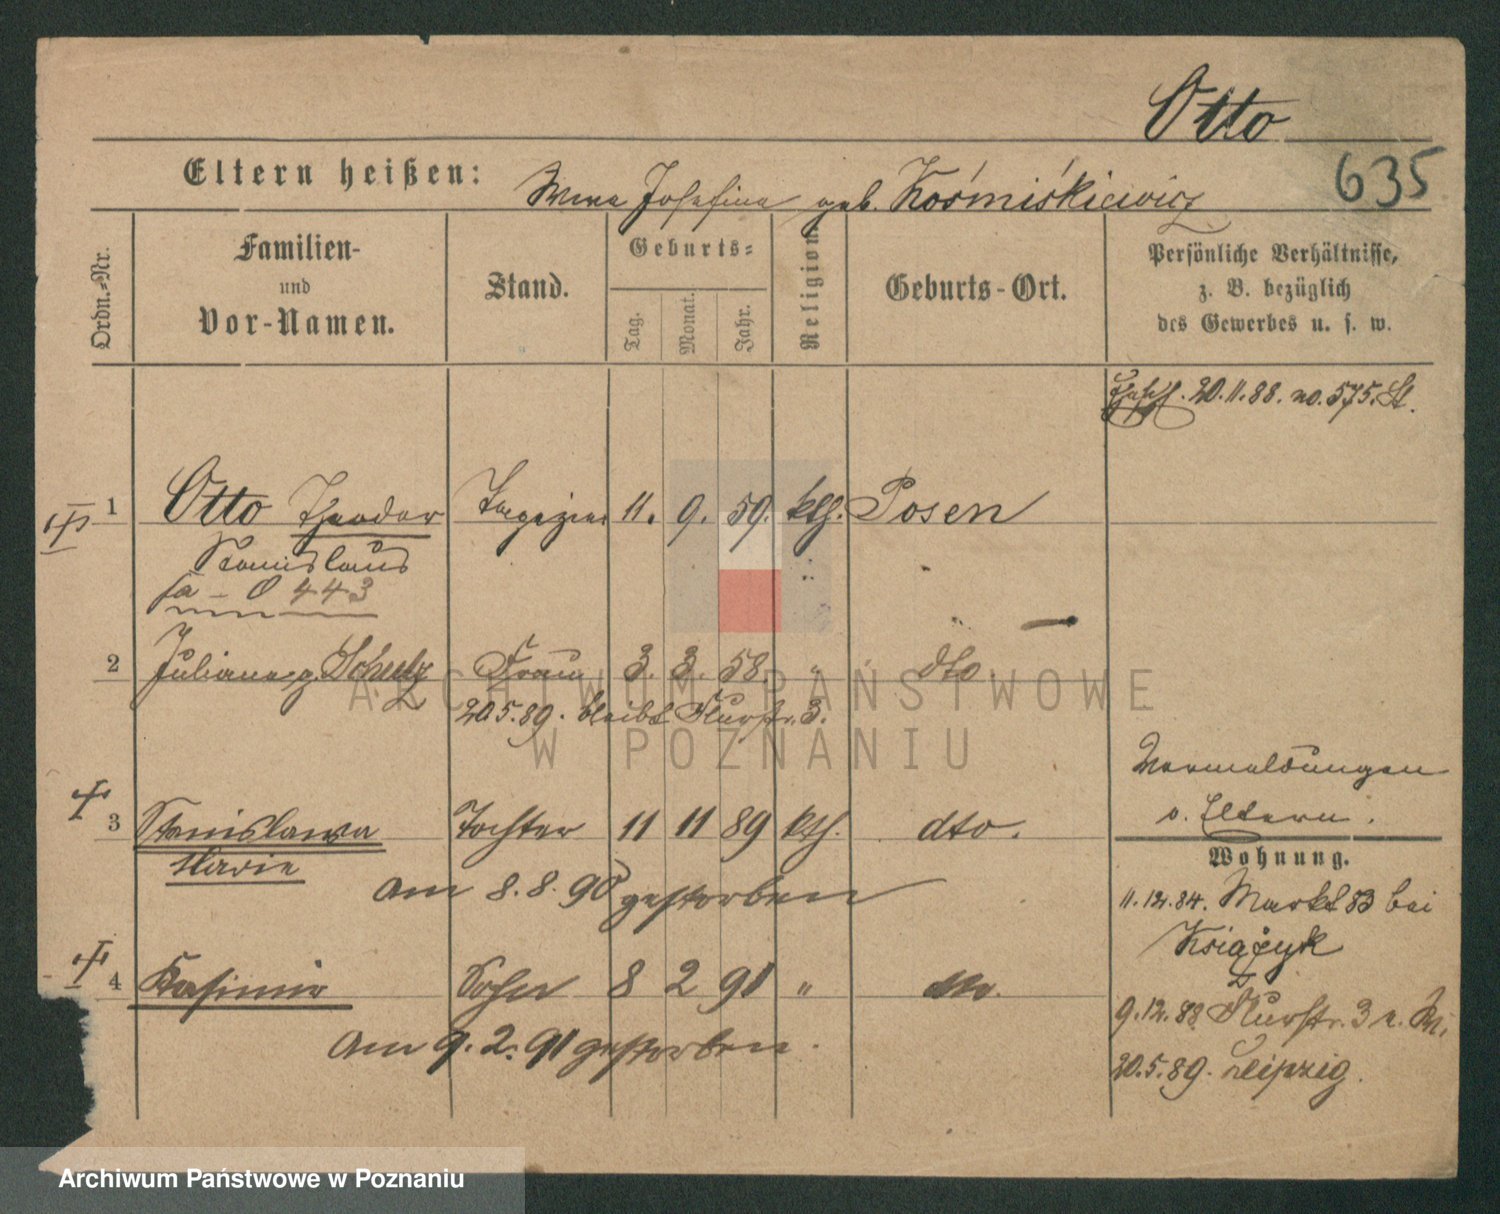 Otto
635
Eltern heißen: Wwe Josefina geb. Kośmiśkiewicz
Ordn.-Nr.
Familien-
und
Vor-Namen.
Stand.
Geburts-
Tag. Monat. Jahr.
Religion
Geburts-Ort.
Persönliche Verhältnisse,
z. B. bezüglich
des Gewerbes u. s. w.
20.11.88. no. 575. St.
1 Otto Theodor Tapezier 11. 9. 59. kth. Posen
Stanislaus
fa - O 443
2 Juliana g. Schulz Frau 3. 3. 58. " dto
20.5.89. bleibt Flurstr. 3.
3 Stanislawa Tochter 11 11 89 kth. dto.
Marie
am 8.8.90 gestorben
4 Kasimir Sohn 8 2 91 " dto.
am 9.2.91 gestorben.
Vermeldungen
v. Eltern.
Wohnung.
11.12.84. Markt 83 bei
Książyk
9.12.88 Flurstr. 3 n.
20.5.89. Leipzig.
ARCHIWUM PAŃSTWOWE
W POZNANIU
Archiwum Państwowe w Poznaniu